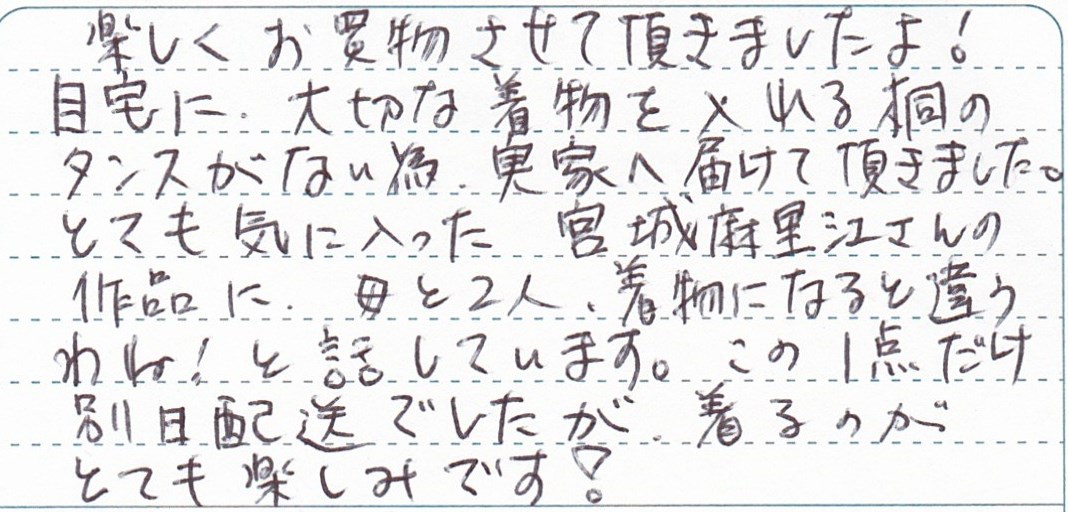 楽しくお買物させて頂きましたよ!
自宅に、大切な着物を入れる桐の
タンスがない為、実家へ届けて頂きました。
とても気に入った 宮城麻里江さんの
作品に、母と2人、着物になると違う
わね!と話しています。この1点だけ
別日配送でしたが、着るのが
とても楽しみです!